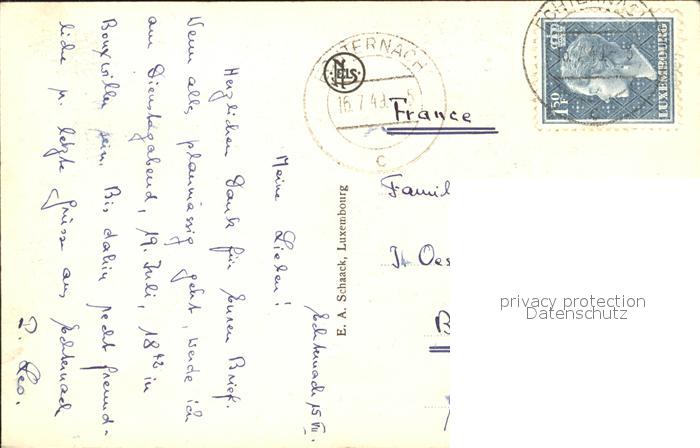 Echternach 15 VII.
Meine Lieben!
Herzlichen Dank für Euren Brief.
Wenn alles planmässig geht, werde ich
am Dienstagabend, 19. Juli, 18 42 in
Bouxwiller sein. Bis dahin recht freund-
liche u. letzte Grüsse aus Echternach
P. Leo.
E. A. Schaack, Luxembourg
NELS
ECHTERNACH
16 7 49
C
France
Famil
J. Oes
ECHTERNACH
C
1,50 F
LUXEMBOURG
privacy protection
Datenschutz